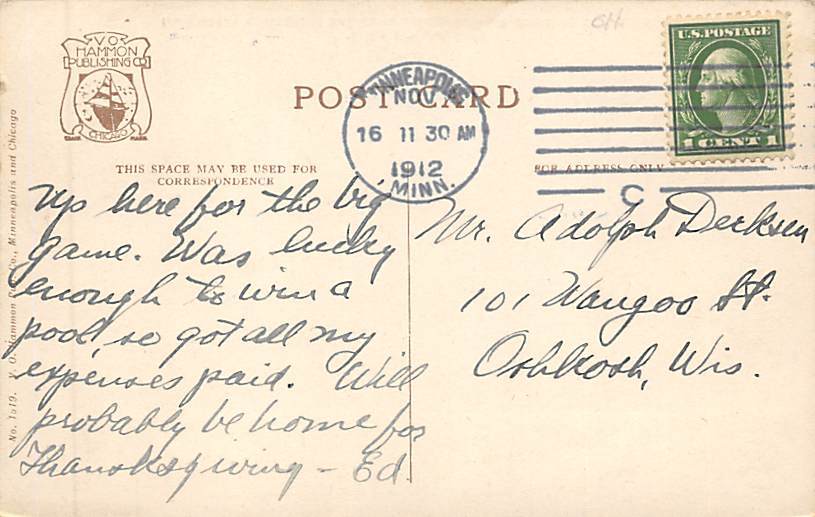 V O
HAMMON
PUBLISHING CO
CHICAGO
TRADE MARK
POST CARD
MINNEAPOLIS
NOV
16 11 30 AM
1912
MINN.
C
U.S. POSTAGE
1 CENT 1
THIS SPACE MAY BE USED FOR
CORRESPONDENCE
FOR ADDRESS ONLY
Up here for the big
game. Was lucky
enough to win a
pool, so got all my
expenses paid. Will
probably be home for
Thanoksgiving - Ed.
Mr. Adolph Derksen
101 Waugoo St.
Oshkosh, Wis.
No. 1519. V. O. Hammon Pub. Co., Minneapolis and Chicago